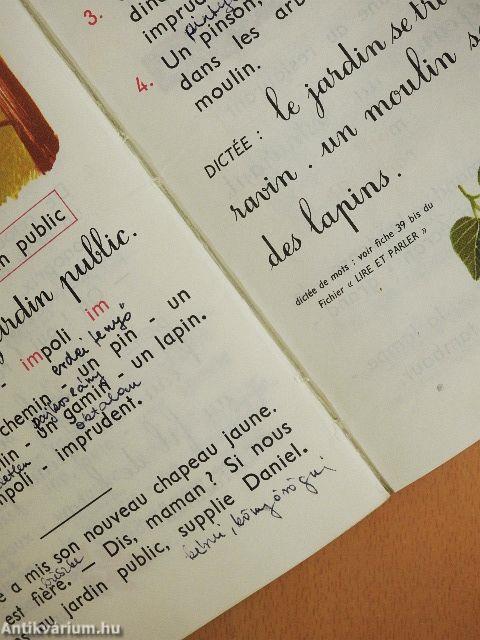 n public
jardin public.
- impoli im
erdei fenyő
chemin - un pin - un
lin - un gamin - un lapin.
oktalan
mpoli - imprudent.
e a mis son nouveau chapeau jaune.
est fière. — Dis, maman ? Si nous
büszke
au jardin public, supplie Daniel.
kérni, könyörögni
3.
imprud
4. Un pinson,
dans les ar
moulin.
DICTÉE : le jardin se tr
ravin. un moulin s
des lapins.
dictée de mots : voir fiche 39 bis du
Fichier « LIRE ET PARLER »
Antikvárium.hu